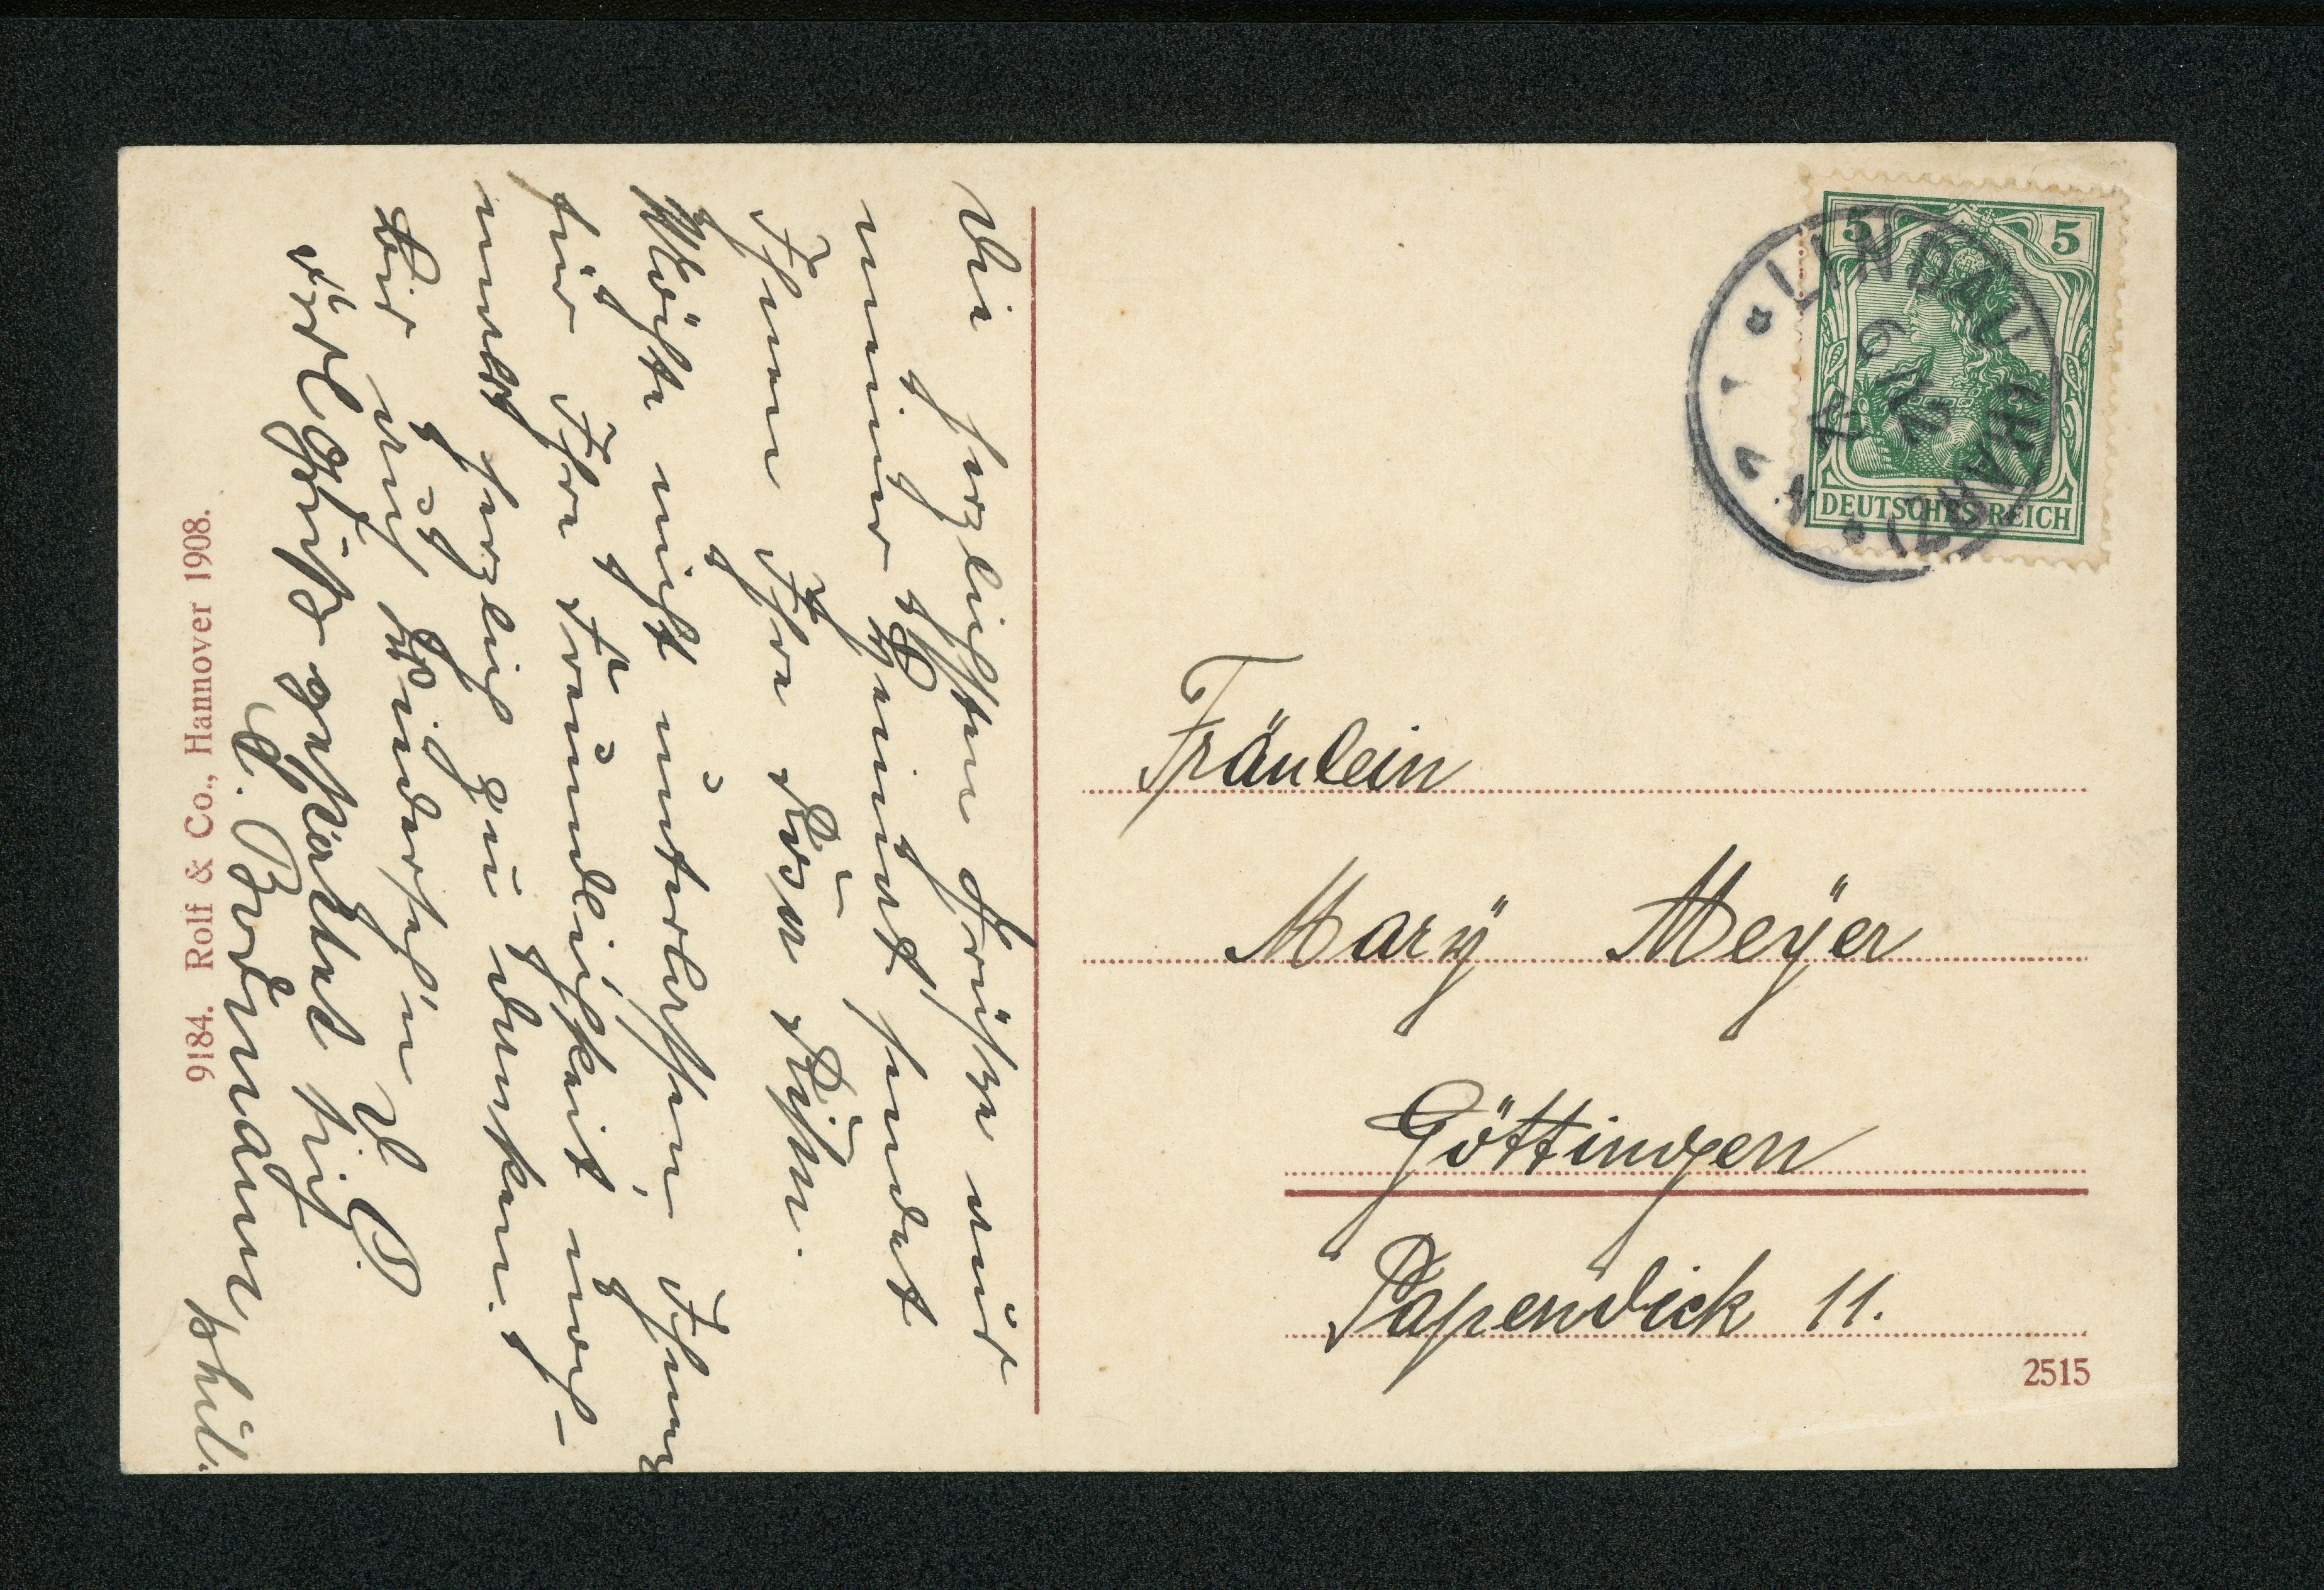 Die herzlichsten Grüße aus
meiner Heimat sendet
Ihnen Ihre Rosa
Möchte nicht unterlassen, Ihnen
für Ihre Freundlichkeit noch-
mals herzlich zu danken.
Auf Wiedersehn
Grüße
Bodmann
phil.
9184. Rolf & Co., Hannover 1908.
5 5
DEUTSCHES REICH
LINDAU (HARZ)
6 12
Fräulein
Mary Meyer
Göttingen
Papendick 11.
2515